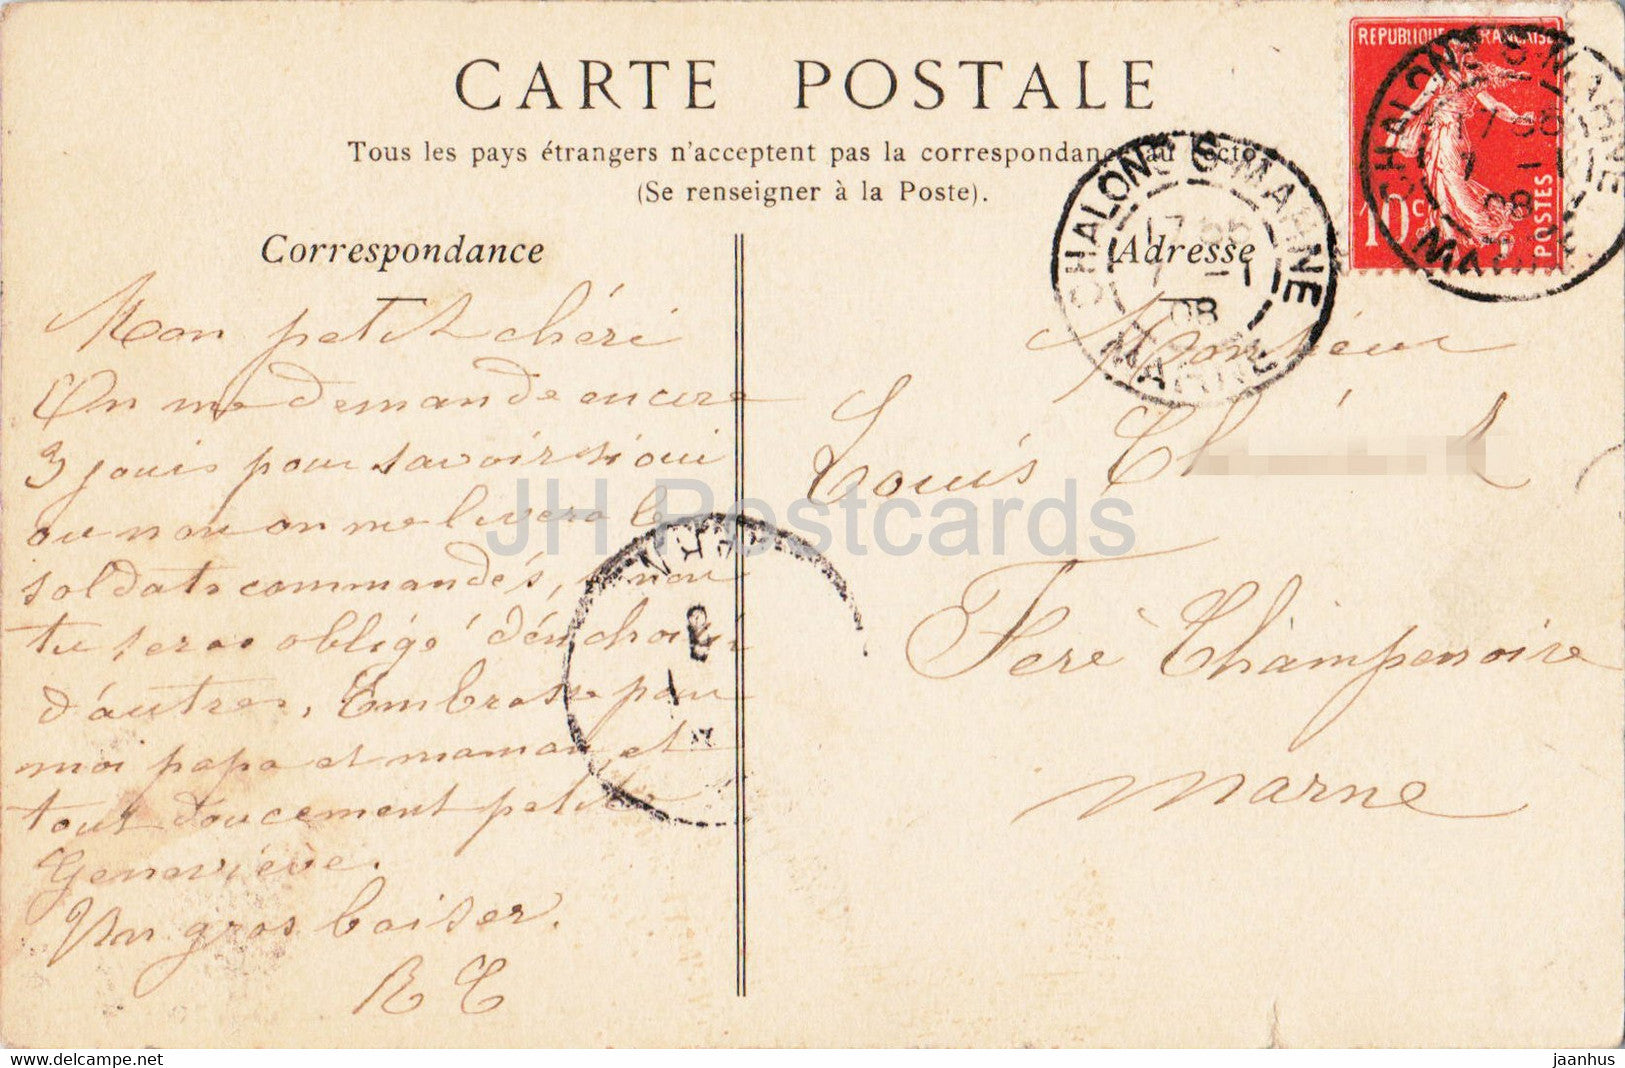 CARTE POSTALE
Tous les pays étrangers n'acceptent pas la correspondance au recto
(Se renseigner à la Poste).
Correspondance
Mon petit chéri
On me demande encore
3 jours pour savoir si oui
ou non on me livrera les
soldats commandés, si non
tu seras obligé d'en choisir
d'autres, Embrasse pour
moi papa et maman, et
tout doucement petite
Geneviève.
Un gros baiser.
R C
Adresse
Monsieur
Louis
Fère Champenoise
Marne
REPUBLIQUE FRANÇAISE
10c
POSTES
CHALONS S-MARNE
17 55
7 -1
08
MARNE
CHALONS S-MARNE
7 -1
08
MARNE
JH Postcards
delcampe.net
jaanhus